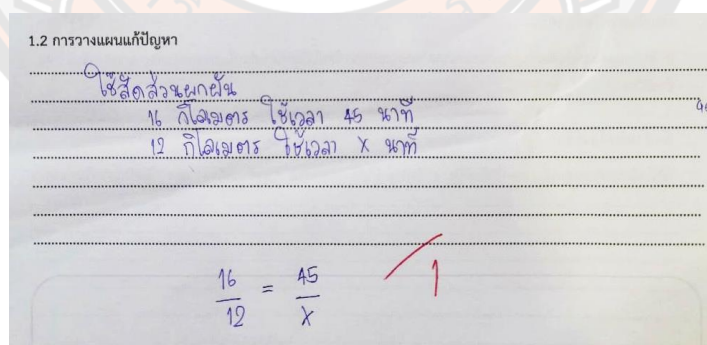 1.2 การวางแผนแก้ปัญหา
ใช้สัดส่วนผกผัน
16 กิโลเมตร ใช้เวลา 45 นาที
12 กิโลเมตร ใช้เวลา x นาที
16/12 = 45/x
1